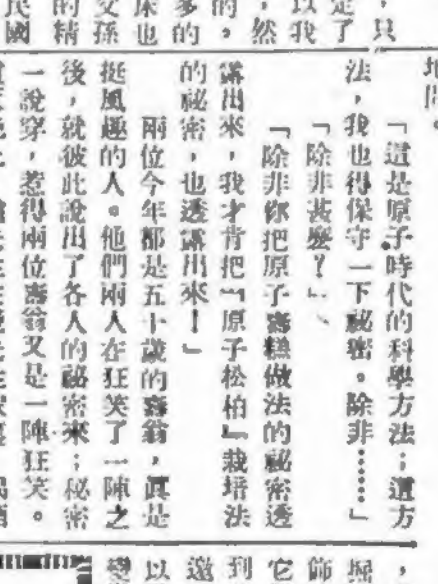 ，只
定了
以我
，然
的。
多的
床也
孫
的精
民國
地問。
「這是原子時代的科學方法；這方
法，我也得保守一下祕密。除非……」
「除非甚麼？」
「除非你把原子壽糕做法的祕密透
露出來，我才肯把『原子松柏』栽培法
的祕密，也透露出來！」
兩位今年都是五十歲的壽翁，眞是
挺風趣的人。他們兩人在狂笑了一陣之
後，就彼此說出了各人的祕密來；秘密
一說穿，惹得兩位壽翁又是一陣狂笑。
，
它
到
邀
以
變